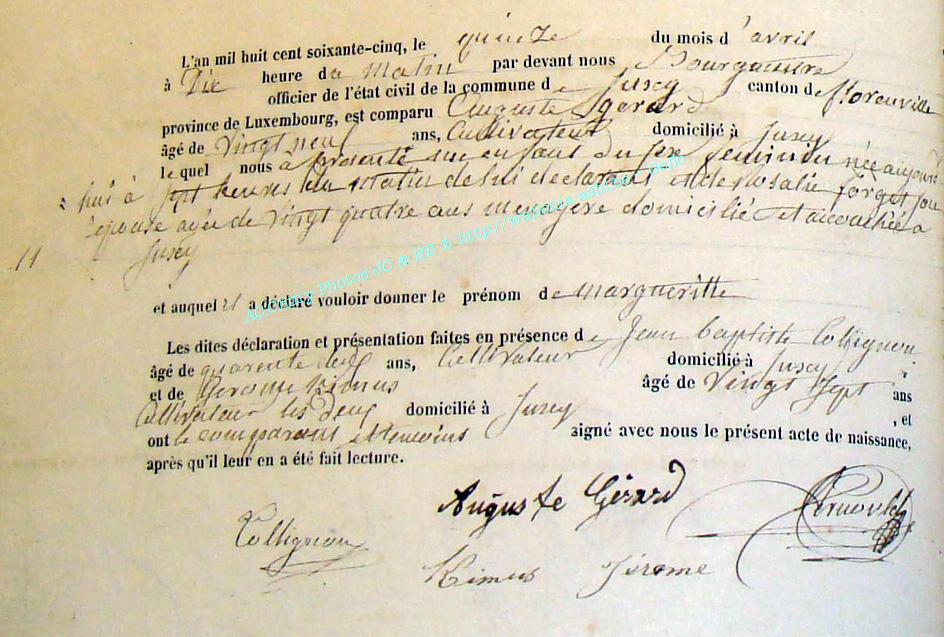 L'an mil huit cent soixante-cinq, le quinze du mois d'avril
à Dix heure du matin par devant nous Bourguemestre
officier de l'état civil de la commune de Jusey canton de florenville
province de Luxembourg, est comparu Auguste gerard
âgé de Vingt neuf ans, Cultivateur domicilié à Jusey
le quel nous a présenté une enfant du sexe feminin née aujourd
hui à sept heures du matin de lui declarant et de rosalie forget son
épouse agée de vingt quatre ans menagere domicilié et accouchée a
11 Jusey
et auquel il a déclaré vouloir donner le prénom de margueritte
Les dites déclaration et présentation faites en présence de Jean baptiste Collignon
âgé de quarente deux ans, Cultivateur domicilié à Jusey
et de Gerome Kimus âgé de Vingt sept ans
Cultivateur les deux domicilié à Jusey , et
ont le comparant et temoins signé avec nous le présent acte de naissance,
après qu'il leur en a été fait lecture.
Auguste Gérard
Collignon
Kimus Jérome